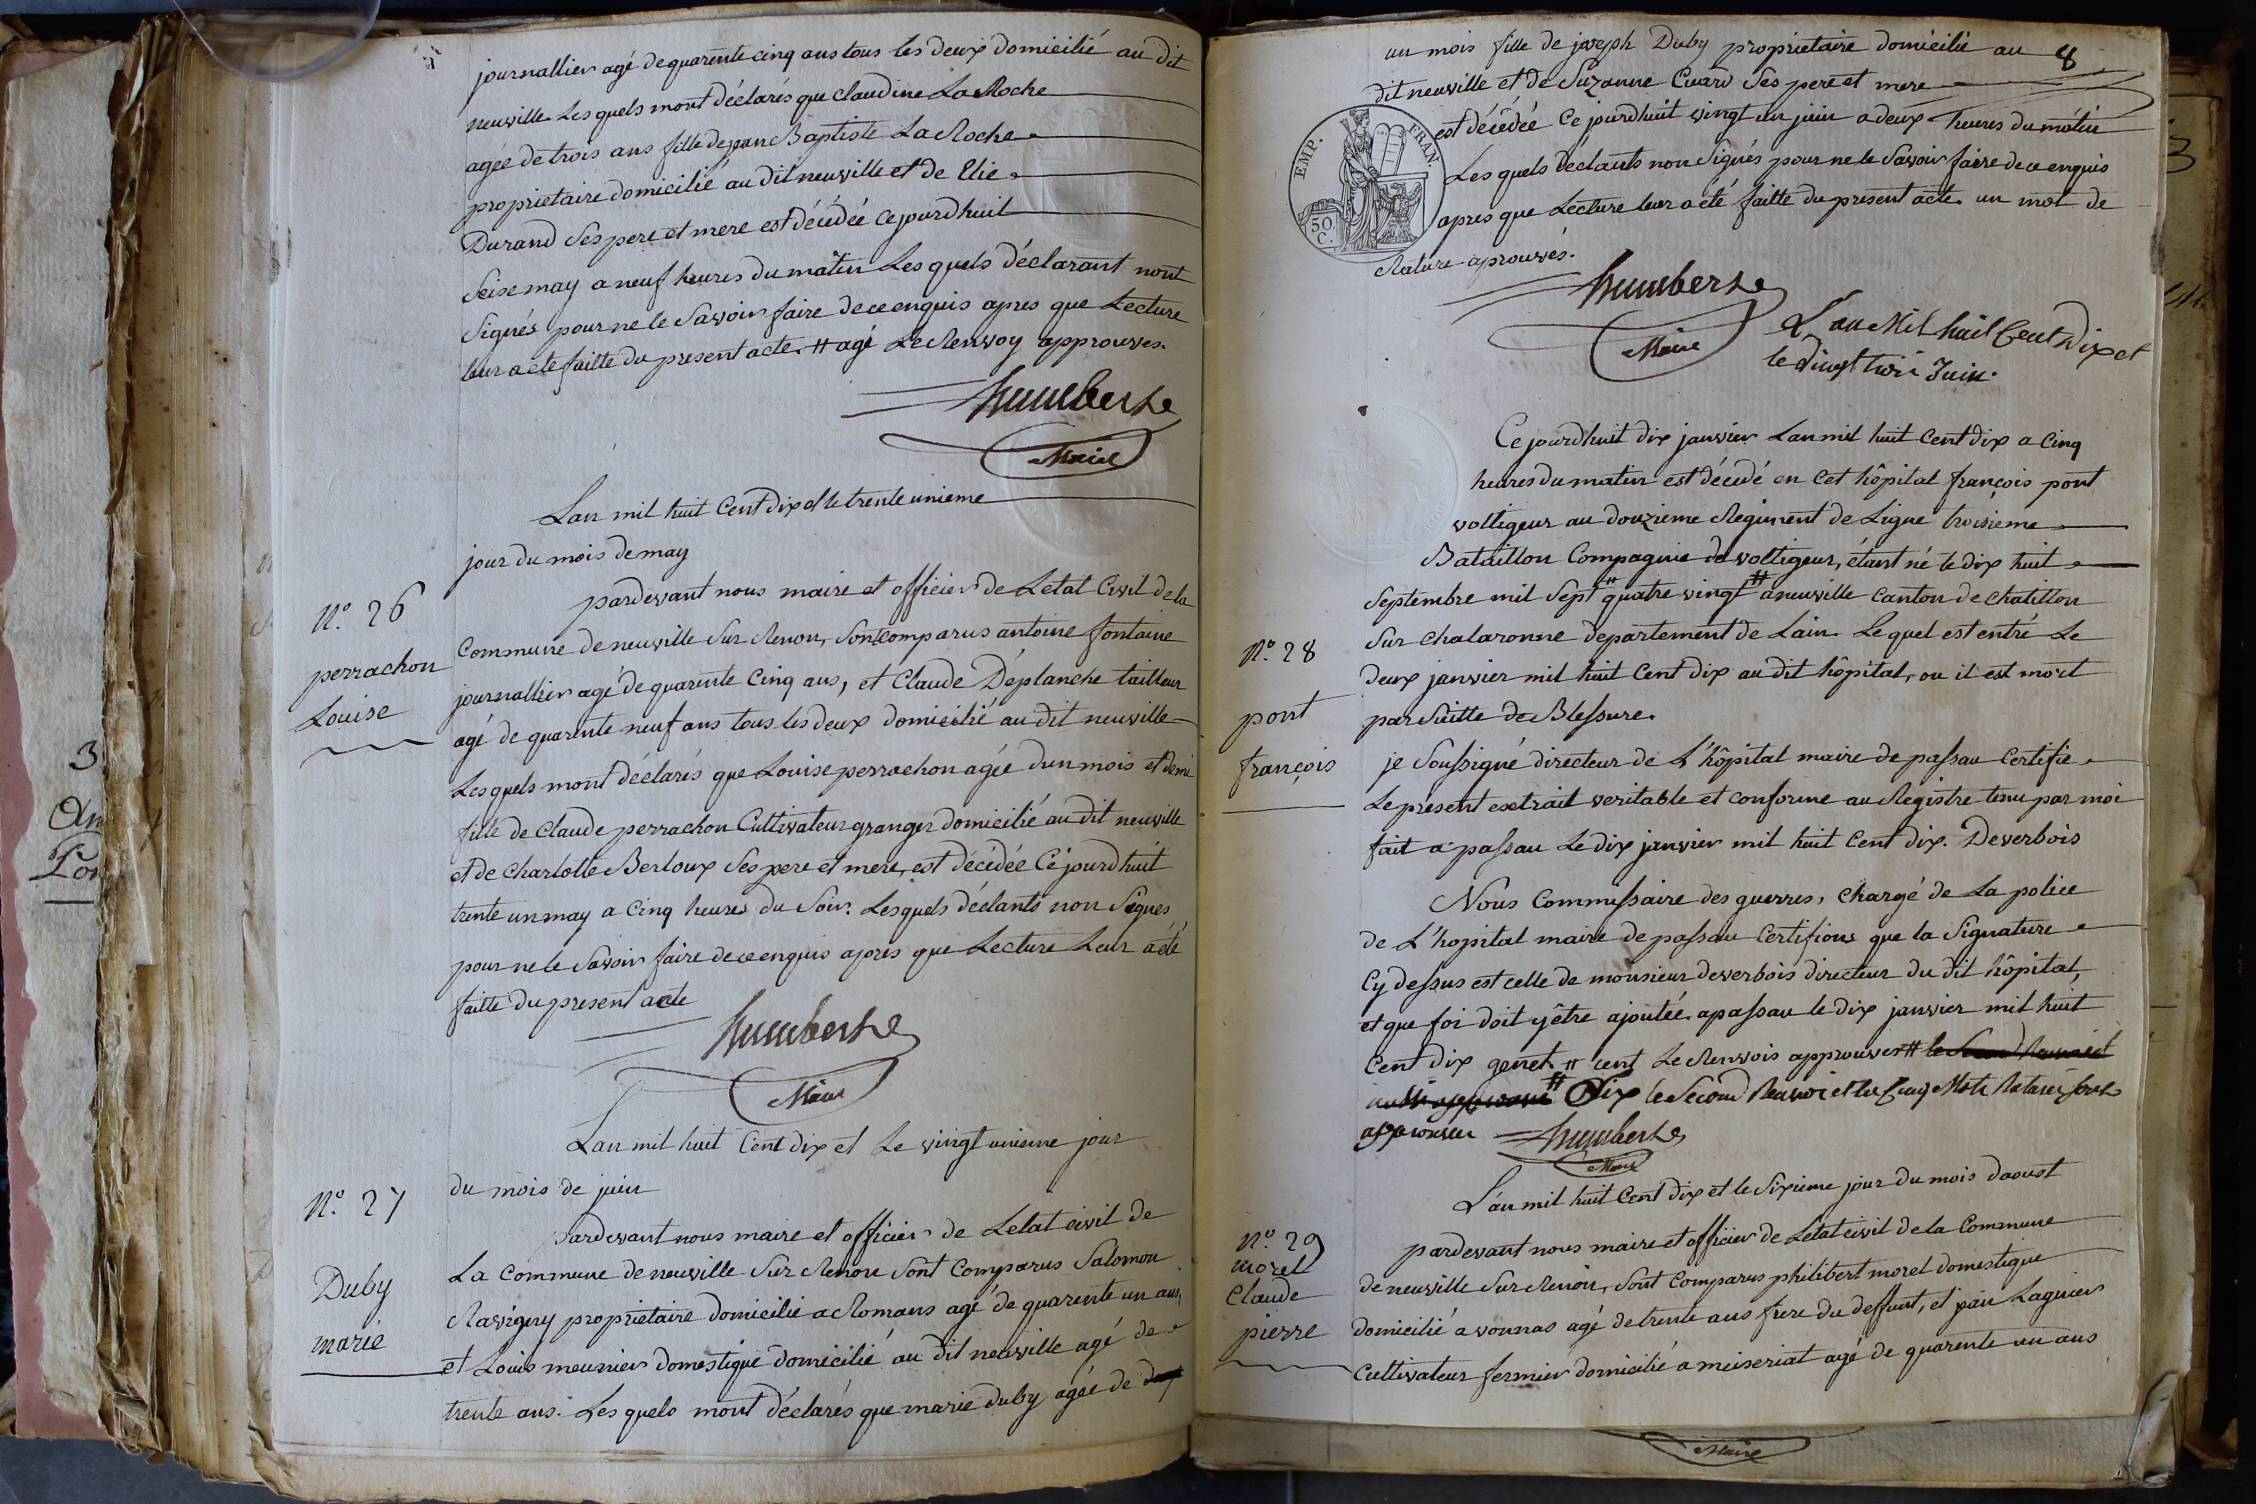 journallier agé de quarente cinq ans tous les deux domicilié au dit
neuville Les quels mont déclarés que Claudine La Roche
agée de trois ans fille de jean Baptiste La Roche
proprietaire domicilié au dit neuville et de Elie
Durand Ses pere et mere est décédée ce jourdhuit
Seise may a neuf heures du matin Les quels déclarant nont
Signés pour ne le Savoir faire de ce enquis apres que Lecture
leur a eté faitte du present acte. # agé Le Renvoy approuves.
humbert
Maire
Lan mil huit Cent dix et le trente unieme
jour du mois de may
N.º 26
perrachon
Louise
pardevant nous maire et officier de Letat Civil de la
Commune de neuville Sur Renon, Sont comparus antoine fontaine
journallier agé de quarente Cinq ans, et Claude Déplanche tailleur
agé de quarente neuf ans tous les deux domicilié au dit neuville
Les quels mont déclarés que Louise perrachon agée dun mois et demi
fille de Claude perrachon Cultivateur granger domicilié au dit neuville
et de Charlotte Berloux Ses pere et mere, est décédée Ce jourdhuit
trente un may a Cinq heures du Soir. Lesquels déclants non Signes
pour ne le Savoir faire de ce enquis apres que Lecture Leur a été
faitte du present acte
humbert
Maire
Lan mil huit Cent dix et Le vingt unieme jour
du mois de juin
N.º 27
Duby
marie
pardevant nous maire et officier de Letat civil de
La Commune de neuville Sur Renon Sont Comparus Salomon
Ravigny proprietaire domicilié a Romans agé de quarente un ans,
et Louis meunier domestique domicilié au dit neuville agé de
trente ans. Les quels mont déclarés que marie duby agée de
8
un mois fille de joseph Duby proprietaire domicilié au
dit neuville et de Suzanne Cuard Ses pere et mere
est décédée Ce jourdhuit vingt un juin a deux heures du matin
Les quels déclants non Signés pour ne le Savoir faire de ce enquis
apres que Lecture leur a eté faitte du present acte. un mot de
Rature aprouvés.
EMP. FRAN.
50 C.
humbert
Maire
L'an Mil huit Cent Dix et
le vingt trois Juin.
Ce jourdhuit dix janvier Lan mil huit Cent dix a Cinq
heures du matin est décédé en Cet hôpital françois pont
voltigeur au douzieme Regiment de Ligne troisieme
Bataillon Compagnie de voltigeur, étant né le dix huit
Septembre mil Sept # quatre vingt # a neuville canton de chatillon
N.º 28
pont
françois
Sur Chalaronne departement de Lain. Le quel est entré Le
deux janvier mil huit Cent dix au dit hôpital, ou il est mort
par Suitte de Blessure.
je Soussigné directeur de L'hôpital maire de passau Certifie
Le présent extrait veritable et conforme au Registre tenu par moi
fait a passau Le dix janvier mil huit Cent dix. Deverbois
Nous Commissaire des guerres, Chargé de La police
de L'hopital maire de passau Certifions que la Signature
Cy dessus est celle de monsieur deverbois directeur du dit hôpital,
et que foi doit y être ajoutée. a passau le dix janvier mil huit
Cent dix genet # cent Le Renvois approuves #
# Dix le Second Renvoi et les Cinq Mots Raturés sont
approuvés
humbert
Maire
L'an mil huit Cent dix et le Sixieme jour du mois daoust
N.º 29
morel
Claude
pierre
pardevant nous maire et officier de Letat civil de la Commune
de neuville Sur Renon, Sont Comparus philibert morel domestique
domicilié a vonnas agé de trente ans frere du deffunt, et jean Lagnier
Cultivateur fermier domicilié a meiseriat agé de quarente un ans
Maire